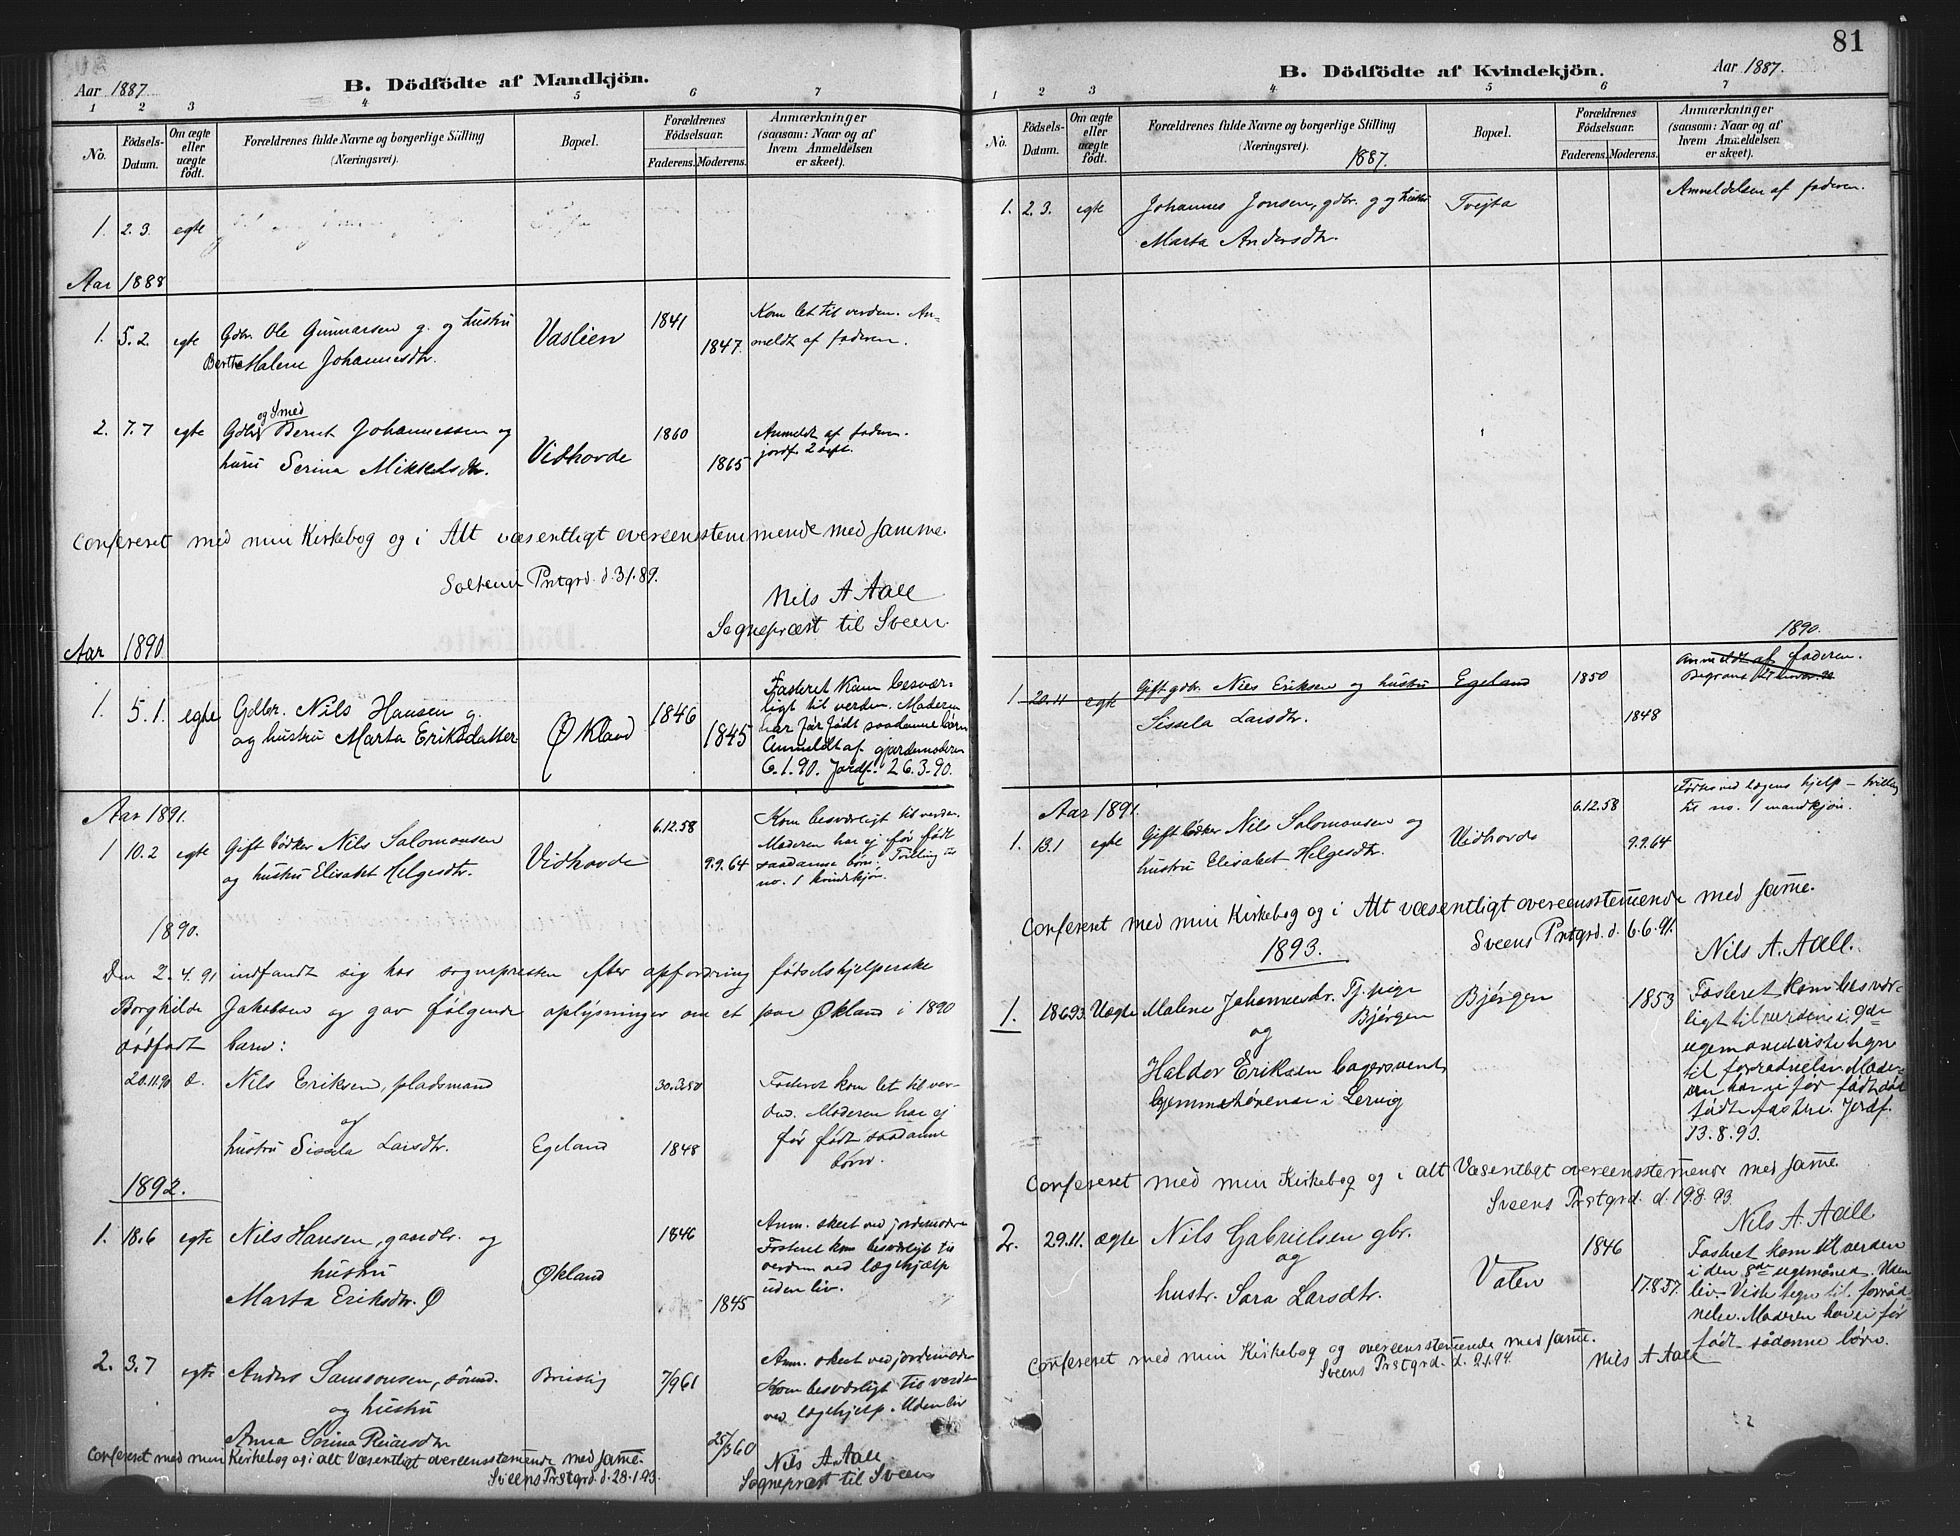 Aar 1887
B. Dödfödte af Mandkjön.
1 2 3 4 5 6 7
No.
Födsels-Datum.
Om ægte eller uægte födt.
Forældrenes fulde Navne og borgerlige Stilling (Næringsvei).
Bopæl.
Forældrenes Födselsaar.
Faderens. Moderens.
Anmærkninger (saasom: Naar og af hvem Anmeldelsen er skeet).
1. 2.3. egte
Aar 1888
1. 5.2. egte Gdbr. Ole Gunnarsen g. og hustru Vaslien 1841 Kom let til verden. An-
Berthe Malene Johannesdtr. 1847. meldt af faderen.
og Smed
2. 7.7 egte Gdbr. Bernt Johannessen og Vidhovde 1860 Anmeldt af faderen.
husru Serina Mikkelsdtr. 1865 jordf. 2 sept.
Confereret med min Kirkebog og i Alt væsentligt overeensstemmende med samme.
Prstgrd. d. 3/1.89.
Nils A Aall
Sognepræst til Sveen
Aar 1890
1. 5.1. egte Gdbr. Nils Hansen g. Økland 1846 Fosteret kom besvær-
og hustru Marta Eriksdatter 1845 ligt til verden. Moderen
har før født saadanne børn
Anmeldt af gjordemoderen
6.1.90. Jordf. 26.3.90.
Aar 1891.
1 10.2 egte Gift bødker Nils Salomonsen Vidhovde 6.12.58 Kom besværligt til verden.
og hustru Elisabet Helgesdtr. 9.9.64 Moderen har ej før født
saadanne børn. Tvilling til
no. 1 kvindekjøn.
1890.
Den 2.4.91 indfandt sig hos sognepresten efter opfordring fødselshjelperske
Borghilde Jakobsen og gav følgende oplysninger om et paa Økland i 1890
dødfødt barn:
20.11.90 Nils Eriksen, pladsmand 30.3.50 Fosteret kom let til ver-
og den. Moderen har ej
hustru Sissela Larsdtr. Egeland 1848 før født saadanne
børn.
1892.
1. 18.6 egte Nils Hansen, gaardbr. og 1846 Anm. skeet ved jordemoderen
hustru Økland Fosteret kom besværligt til
Marta Eriksdtr. Ø 1845 verden ved lægehjælp
uden liv.
2. 3.7 egte Anders Samsonsen, 7/9 61 Anm. skeet ved jordemoder
og hustru Kom besværligt til verden
Anna Serina 25/3 60 ved lægehjelp. Uden liv
Confereret med min Kirkebog og i alt Væsentligt overeensstemmende med samme.
Sveens Prstgrd. d. 28.1.93.
Nils A Aall
Sognepræst til Sveen
81
B. Dödfödte af Kvindekjön.
Aar 1887.
1 2 3 4 5 6 7
No.
Födsels-Datum.
Om ægte eller uægte födt.
Forældrenes fulde Navne og borgerlige Stilling (Næringsvei).
1887.
Bopæl.
Forældrenes Födselsaar.
Faderens. Moderens.
Anmærkninger (saasom: Naar og af hvem Anmeldelsen er skeet).
1. 2.3. egte Johannes Jonsen, gdbr. g og hustru Tvejta Anmeldelsen af faderen.
Marta Andersdtr.
1890.
1 20.11 egte Gift gdbr. Nils Eriksen og hustru Egeland 1850 Anmeldt af faderen.
Sissela Larsdtr. 1848
Aar 1891.
1. 13.1 egte Gift bødker Nils Salomonsen og Vidhovde 6.12.58 Fødtes ved lægens hjelp – tvilling
hustru Elisabet Helgesdtr. 9.9.64 til no. 1 mandkjøn.
Confereret med min Kirkebog og i Alt væsentligt overeensstemmende med samme.
Sveens Prstgrd. d. 6.6.91.
Nils A. Aall.
1893.
1. 18693 Uægte Malene Johannesdr. Tj.pige Bjørgen 1853 Fosteret kom besvær-
Bjørgen ligt til verden i 9de
og ugemaaned viste tegn
Haldor Eriksen til forraadnelse. Moder-
hjemmehørende i Lervig en har ei før født død
fødte fostre. Jordf.
13.8.93.
Confereret med min Kirkebog og i alt Væsentligt overeensstemmende med samme.
Sveens Prstgrd. d. 19.8.93.
Nils A. Aall
2. 29.11. ægte Nils Gabrielsen gbr. Vaten 1846 Fosteret kom til verden
og i den 8de ugemåned. Uden
hustr. Sara Larsdtr. 17.8.57. liv. Viste tegn til forråd-
nelse. Moderen har ei før
født sådanne børn.
Confereret med min Kirkebog og overeensstemmende med samme.
Sveens Prstgrd. d. 2.1.94.
Nils A Aall